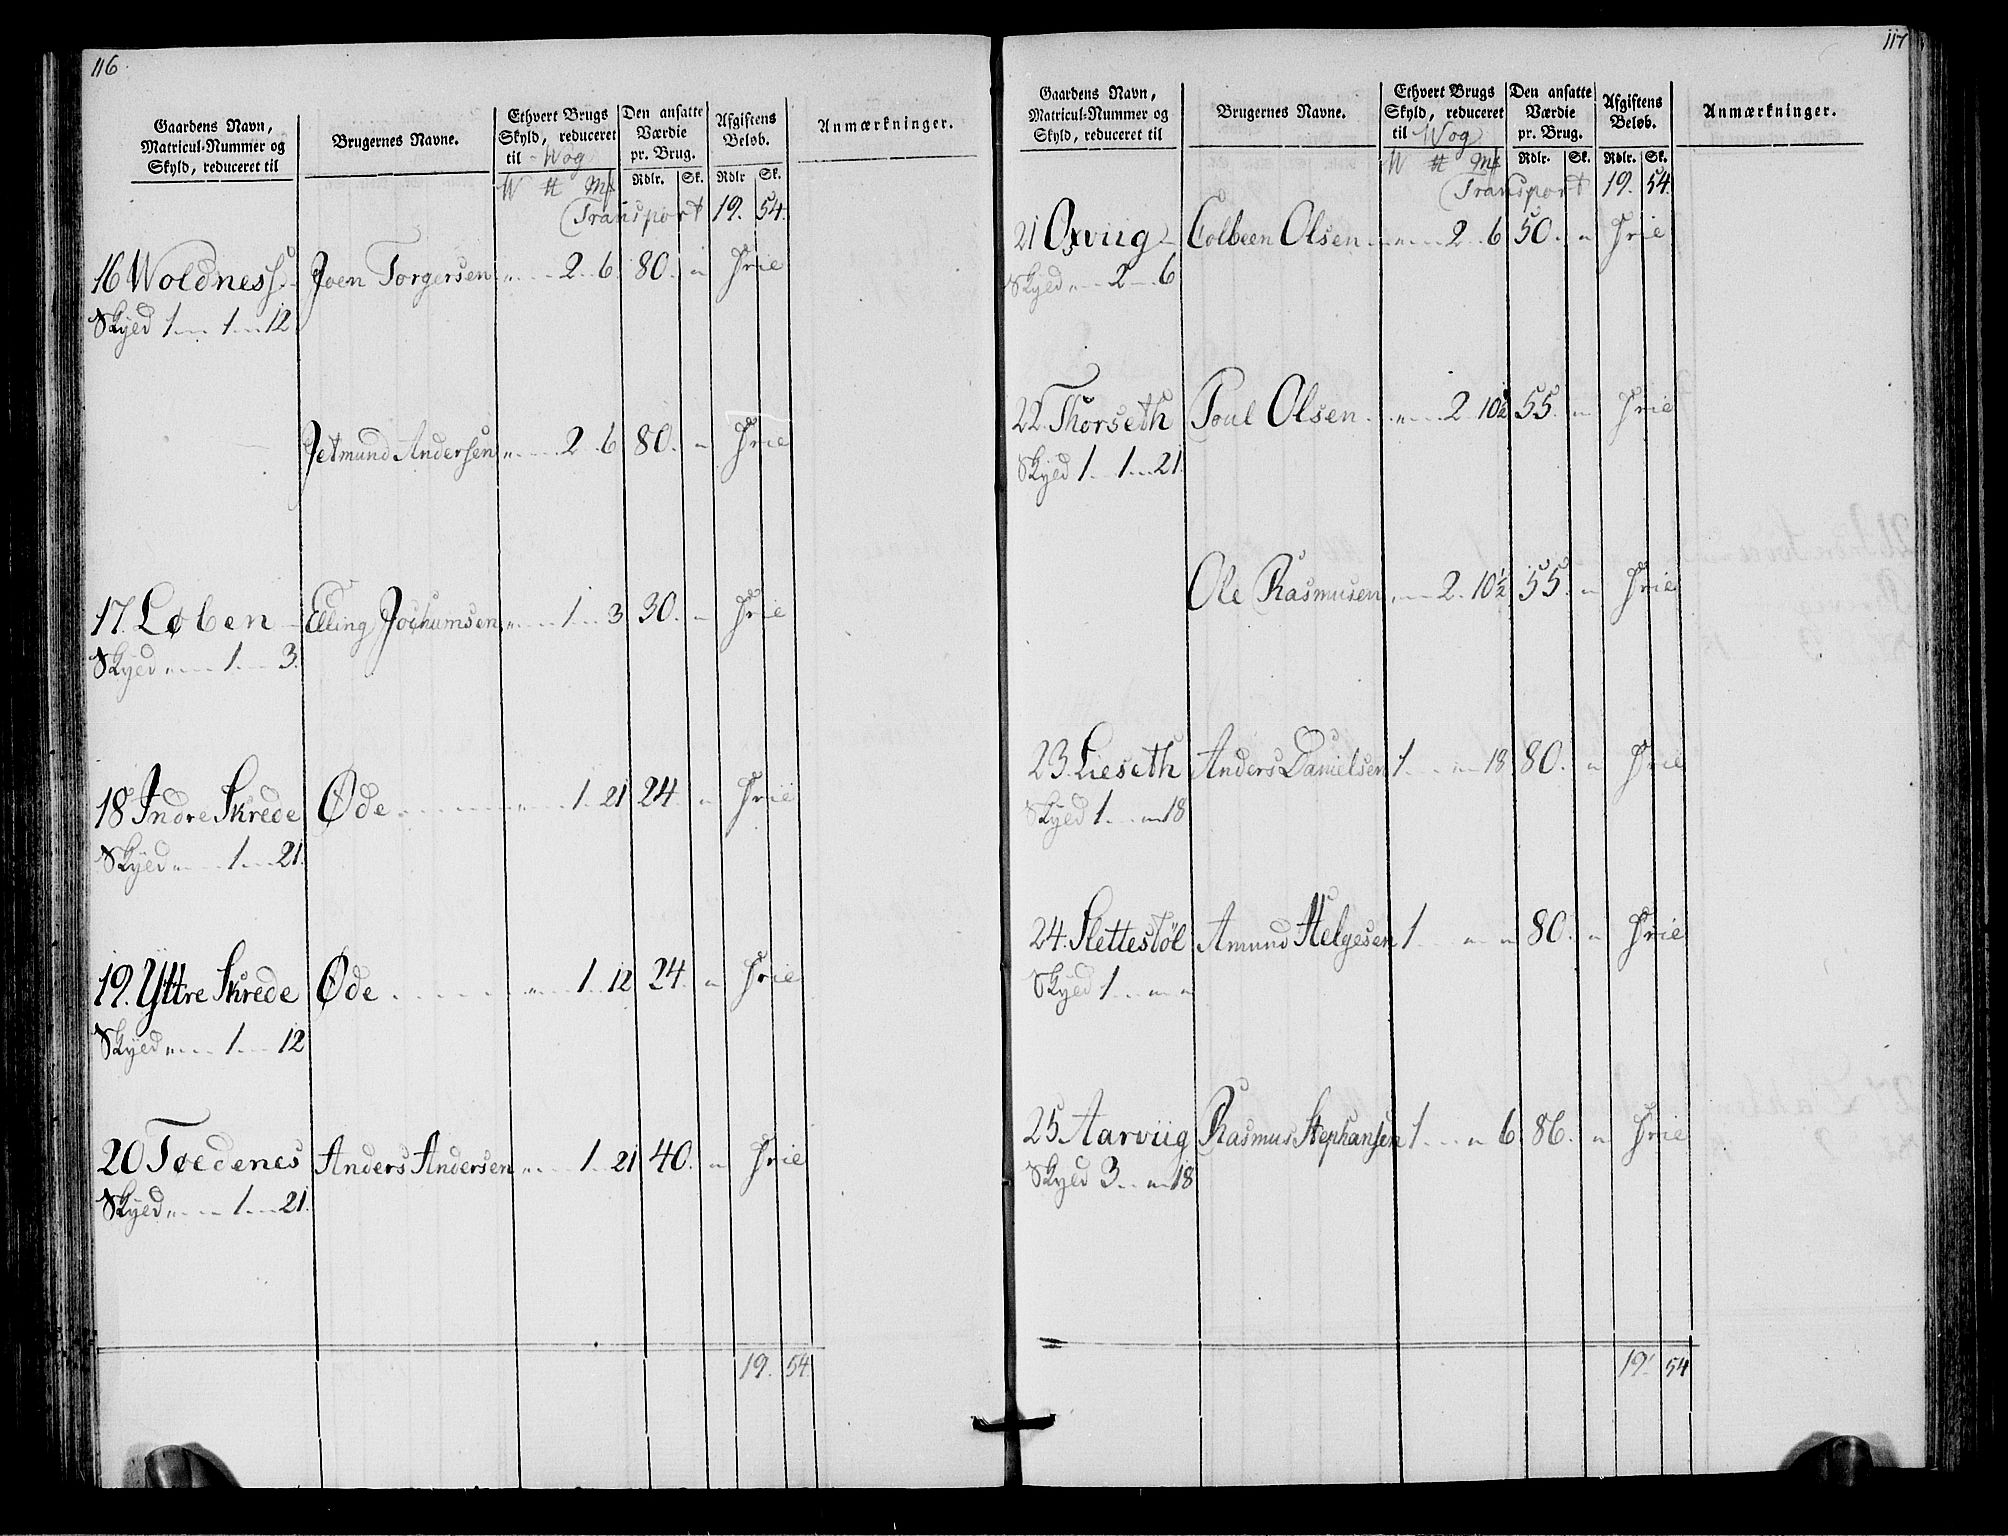 116
Gaardens Navn, Matricul-Nummer og Skyld, reduceret til
Brugernes Navne.
Ethvert Brugs Skyld, reduceret til Wog
Den ansatte Værdie pr. Brug.
Afgiftens Beløb.
Anmærkninger.
W ℔ Mk Rdlr. Sk. Rdlr Sk.
Transport 19. 54.
16 Woldness Joen Torgersen " 2 6 80. " Frie
Skyld 1 1 12.
Jetmund Andersen " 2 6 80. " Frie
17. Løben Elling Jochumsen " 1 3 30. " Frie
Skyld " 1 3.
18 Indre Skrede Øde " 1 21 24. " Frie
Skyld " 1 21.
19. Yttre Skrede Øde " 1 12 24. " Frie
Skyld " 1 12
20 Toedenes Anders Andersen " 1 21 40. " Frie
Skyld " 1 21.
19. 54
117
Gaardens Navn, Matricul-Nummer og Skyld, reduceret til
Brugernes Navne.
Ethvert Brugs Skyld, reduceret til Wog
Den ansatte Værdie pr. Brug.
Afgiftens Beløb.
Anmærkninger.
W ℔ Mk Rdlr. Sk. Rdlr. Sk.
Transport 19. 54.
21 Oxviig Colbeen Olsen " 2 6 50. " Frie
Skyld " 2 6
22. Thorseth Poul Olsen " 2 10½ 55. " Frie
Skyld 1 1 21.
Ole Rasmusen " 2 10½ 55. " Frie
23. Lieseth Anders Danielsen 1 " 18 80. " Frie
Skyld 1 " 18
24. Slettestøl Amund Helgesen 1 " " 80. " Frie
Skyld 1 " "
25 Aarviig Rasmus Stephansen 1 " 6 86. " Frie
Skyld 3 " 18
19. 54